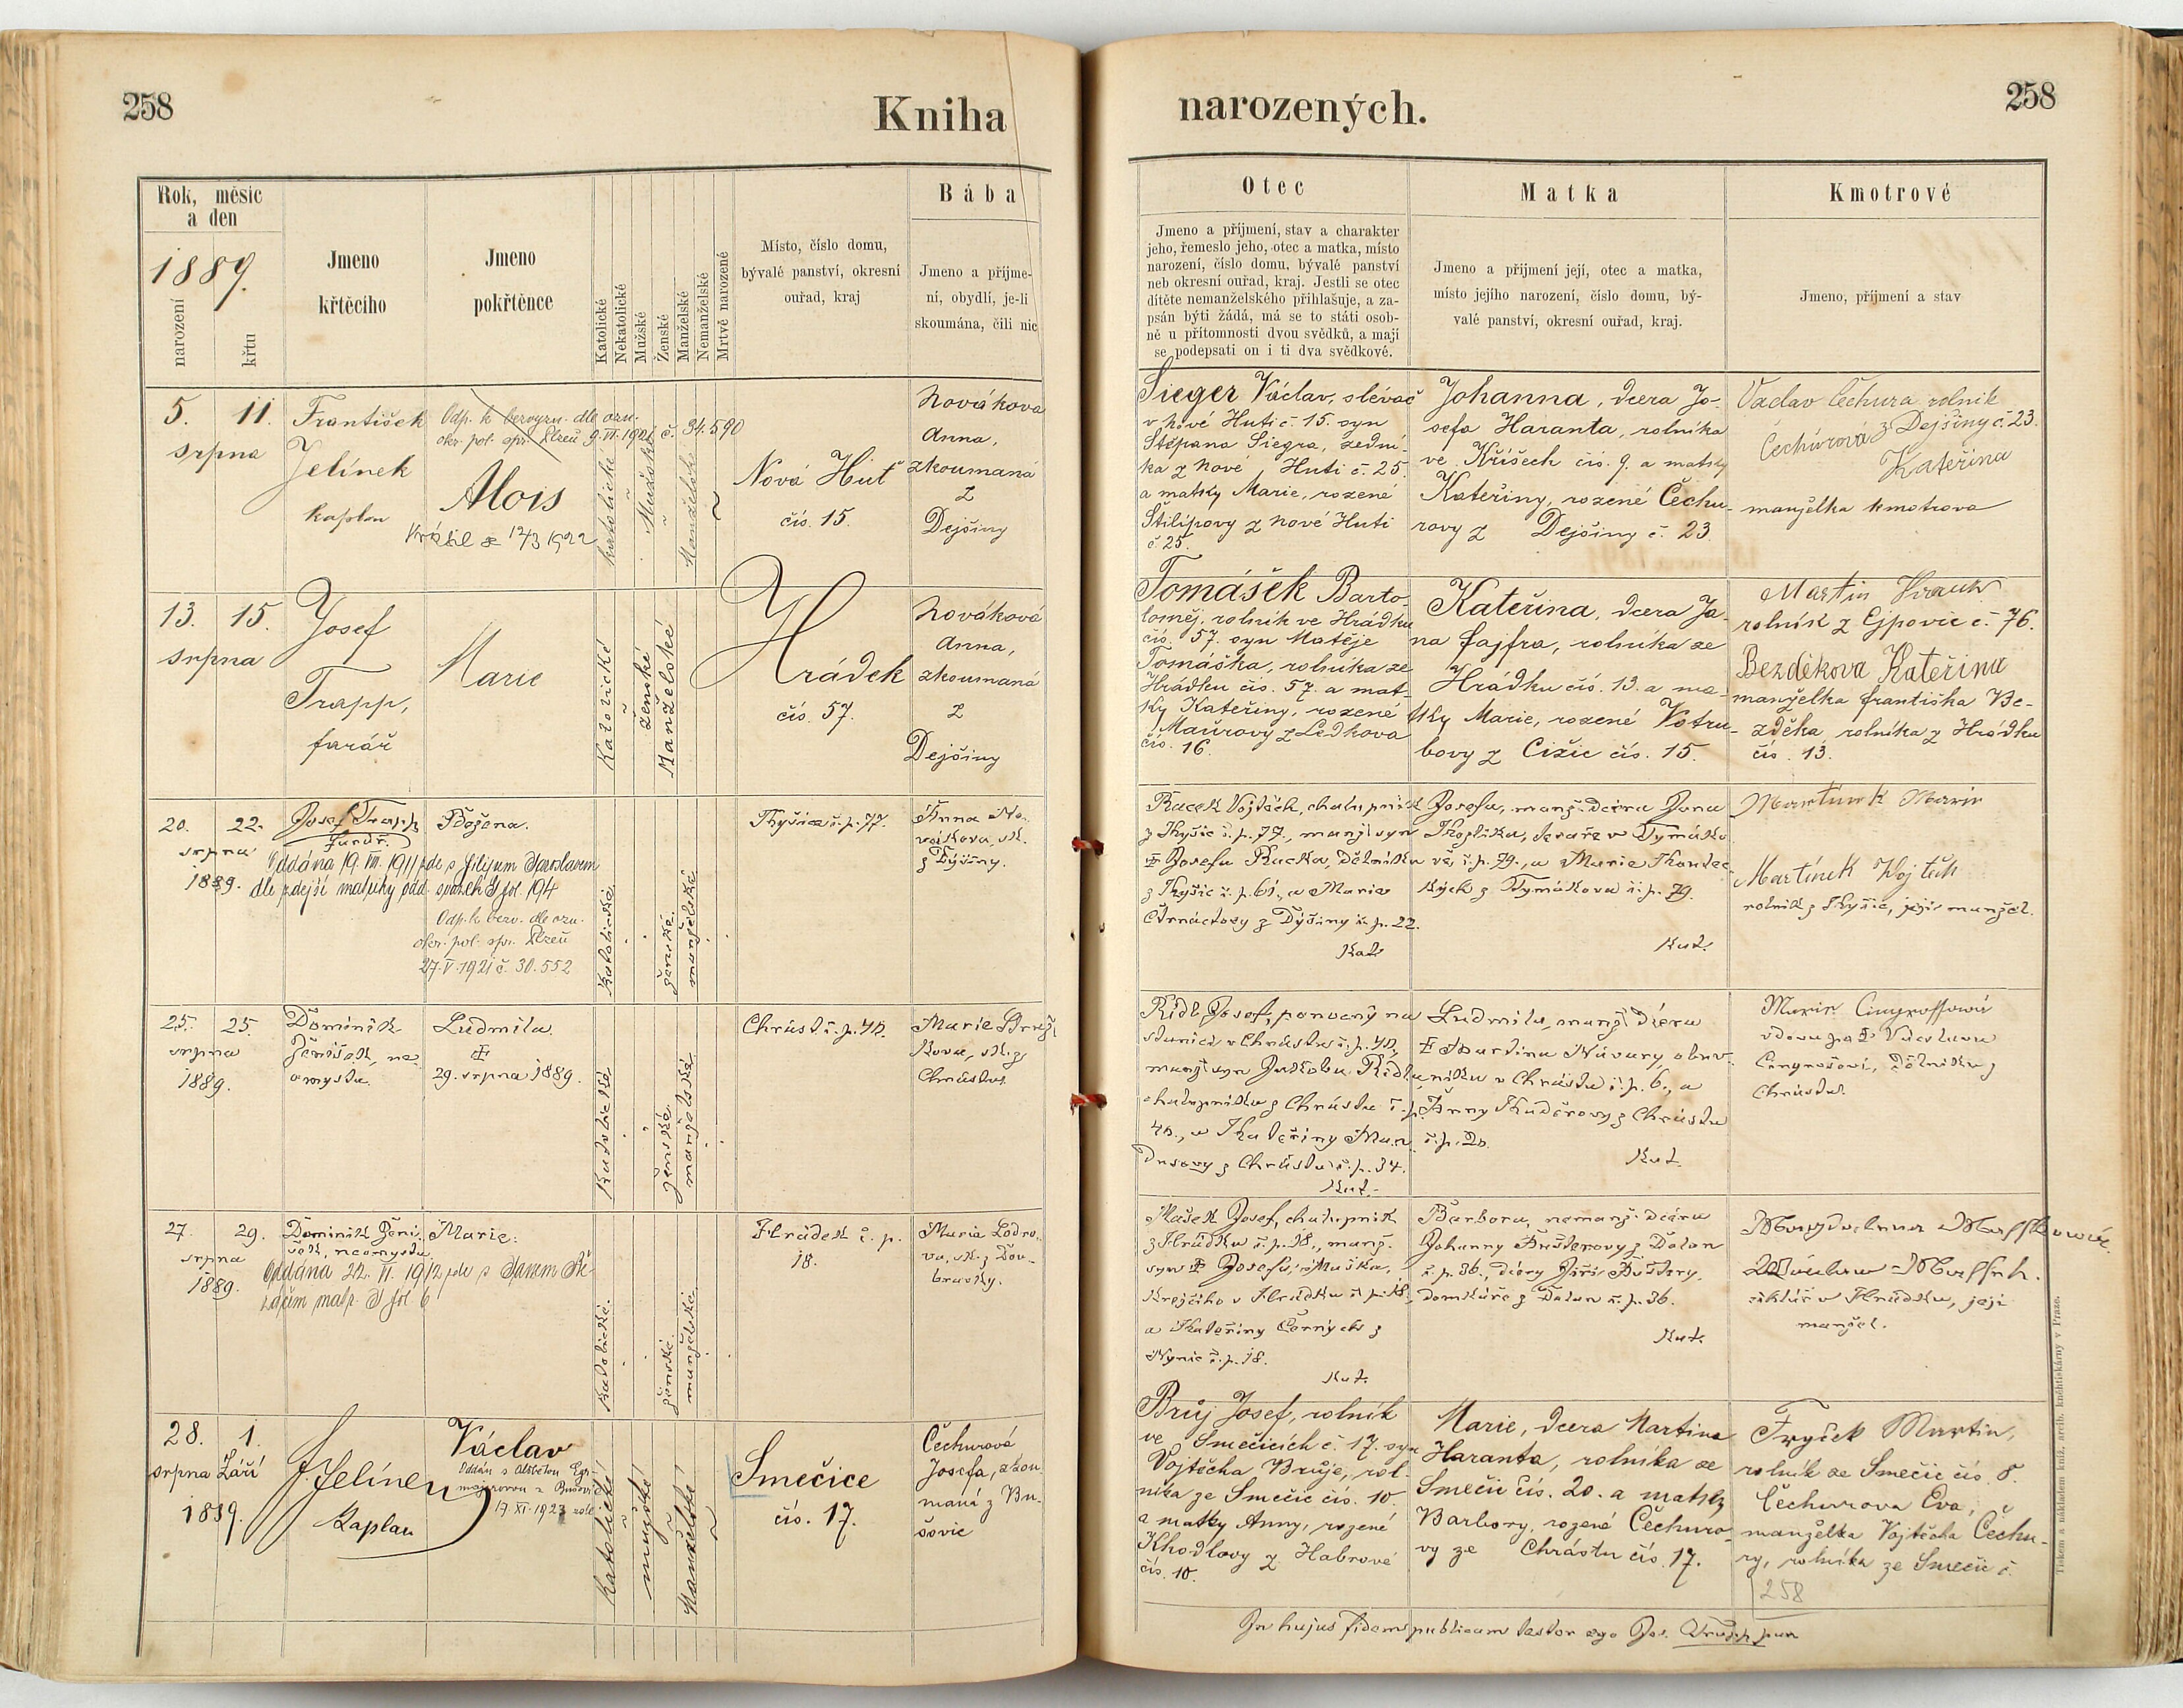 258
Kniha
narozených.
258
Rok, měsíc
a den
1889.
narození
křtu
Jmeno
křtěcího
Jmeno
pokřtěnce
Katolické
Nekatolické
Mužské
Ženské
Manželské
Nemanželské
Mrtvě narozené
Místo, číslo domu,
bývalé panství, okresní
ouřad, kraj
Bába
Jmeno a příjme-
ní, obydlí, je-li
skoumána, čili nic
Otec
Jmeno a příjmení, stav a charakter
jeho, řemeslo jeho, otec a matka, místo
narození, číslo domu, bývalé panství
neb okresní ouřad, kraj. Jestli se otec
dítěte nemanželského přihlašuje, a za-
psán býti žádá, má se to státi osob-
ně u přítomnosti dvou svědků, a mají
se podepsati on i ti dva svědkové.
Matka
Jmeno a příjmení její, otec a matka,
místo jejího narození, číslo domu, bý-
valé panství, okresní ouřad, kraj.
Kmotrové
Jmeno, příjmení a stav
5. 11.
srpna
František
Jelínek
kaplan
Odp. k bezvyzn. dle ozn.
okr. pol. spr. Plzeň 9. VI. 1921 č. 34.590
Alois
Vrátil se 12/3 1922
katolické
Mužské
Manželské
Nová Huť
čís. 15.
Nováková
Anna,
zkoumaná
z
Dejšiny
Sieger Václav, slévač
v Nové Huti č. 15. syn
Štěpána Siegra, zední-
ka z Nové Huti č. 25.
a matky Marie, rozené
Štilipovy z Nové Huti
č. 25.
Johanna, dcera Jo-
sefa Haranta, rolníka
ve Kříšech čís. 9. a matky
Kateřiny, rozené Čechu-
rovy z Dejšiny č. 23.
Václav Čechura rolník
z Dejšiny č. 23.
Čechúrová
Kateřina
manželka kmotrova
13. 15.
srpna
Josef
Trapp,
farář
Marie
Katolické
Ženské
Manželské
Hrádek
čís. 57.
Nováková
Anna,
zkoumaná
z
Dejšiny
Tomášek Barto-
loměj, rolník ve Hrádku
čís. 57. syn Matěje
Tomáška, rolníka ze
Hrádku čís. 57. a mat-
ky Kateřiny, rozené
Maurovy z Ledkova
čís. 16.
Kateřina, dcera Ja-
na Fajfra, rolníka ze
Hrádku čís. 13. a ma-
tky Marie, rozené Votru-
bovy z Cižic čís. 15.
Martin
rolník z Ejpovic č. 76.
Bezděkova Kateřina
manželka Františka Be-
zděka, rolníka z Hrádku
čís. 13.
20. 22.
srpna
1889.
Josef Trapp
farář.
Božena.
Oddána 19. VII. 1911 zde s Jiljím Jaroslavem
dle zdejší matriky odd. svazek fol. 194
Odp. k bezv. dle ozn.
okr. pol. spr. Plzeň
27. V. 1921 č. 30.552
Katolické
ženské
manželské
Kyšice č. p. 77.
Anna No-
váková, zk.
z Dýšiny.
Racek Vojtěch, chalupník
z Kyšic č. p. 77., manž. syn
Josefa Racka, dělníka
z Kyšic č. p. 61., a Marie
Čtrnáctovy z Dýšiny č. p. 22.
Kat.
Josefa, manž. dcera Jana
v Tymáko-
vě, č. p. 79., a Marie
z Tymákova č. p. 79.
Kat.
Martínek Marie
Martínek Vojtěch
rolník z Kyšic, její manžel.
25. 25.
srpna
1889.
Dominik
Ženíšek, ne-
omysta.
Ludmila
29. srpna 1889.
Katolické
ženské
manželské
Chrást č. p. 40.
Marie
zk. z
Chrástu.
Rídl Josef,
stanici v Chrástu č. p. 40.,
manž. syn Jakoba Rídla,
chalupníka z Chrástu č. p.
40., a Kateřiny Man-
dusovy z Chrástu č. p. 34.
Kat.
Ludmila, manž. dcera
Martina Návary, obuv-
níka v Chrástu č. p. 6., a
Anny Kuderovy z Chrástu
č. p. 20.
Kat.
Marie
vdova po Václavu
dělníku z
Chrástu.
27. 29.
srpna
1889.
Dominik Žení-
šek, neomysta.
Marie.
Oddána 22. VI. 1912 zde s
fol. 6
Katolické
ženské
manželské
Hrádek č. p.
18.
Maria Lodro-
va, zk. z Dou-
bravky.
Mašek Josef, chalupník
z Hrádku č. p. 18., manž.
syn Josefa Maška,
krejčího v Hrádku č. p. 18.,
a Kateřiny Černých z
Nynic č. p. 18.
Kat.
Barbora, nemanž. dcera
Johanny Šusterovy z Dolan
č. p. 36., dcery Jiřího Šustery,
domkáře z Dolan č. p. 36.
Kat.
Magdalena
Václav
v Hrádku, její
manžel.
28. 1.
srpna Září
1889.
J. Jelínek
Kaplan
Václav
Oddán s Alžbětou
17. XI. 1923 zde
Katolické
mužské
Manželské
Smečice
čís. 17.
Čechurová
Josefa, zkou-
maná z Bu-
šovic
Brůj Josef, rolník
ve Smečicích č. 17. syn
Vojtěcha Brůje, rol-
níka ze Smečic čís. 10.
a matky Anny, rozené
Khodlovy z Habrové
čís. 10.
Marie, dcera Martina
Haranta, rolníka ze
Smečic čís. 20. a matky
Barbory, rozené Čechuro-
vy ze Chrástu čís. 17.
Fryček Martin,
rolník ze Smečic čís. 8.
Čechurova Eva,
manželka Vojtěcha Čechu-
ry, rolníka ze Smečic č.
258
In hujus fidem publicam testor ego Jos. Trapp
Tiskem a nákladem kníž. arcib. knihtiskárny v Praze.